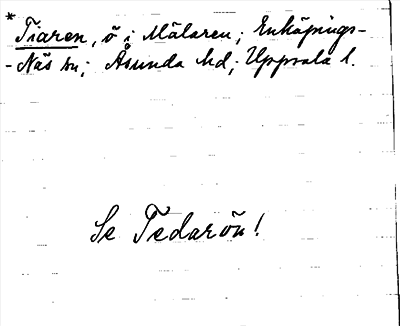 * Tiaren, ö i Mälaren; Enköpings-
-Näs sn; Åsunda hd; Uppsala l.
Se Tedarön!